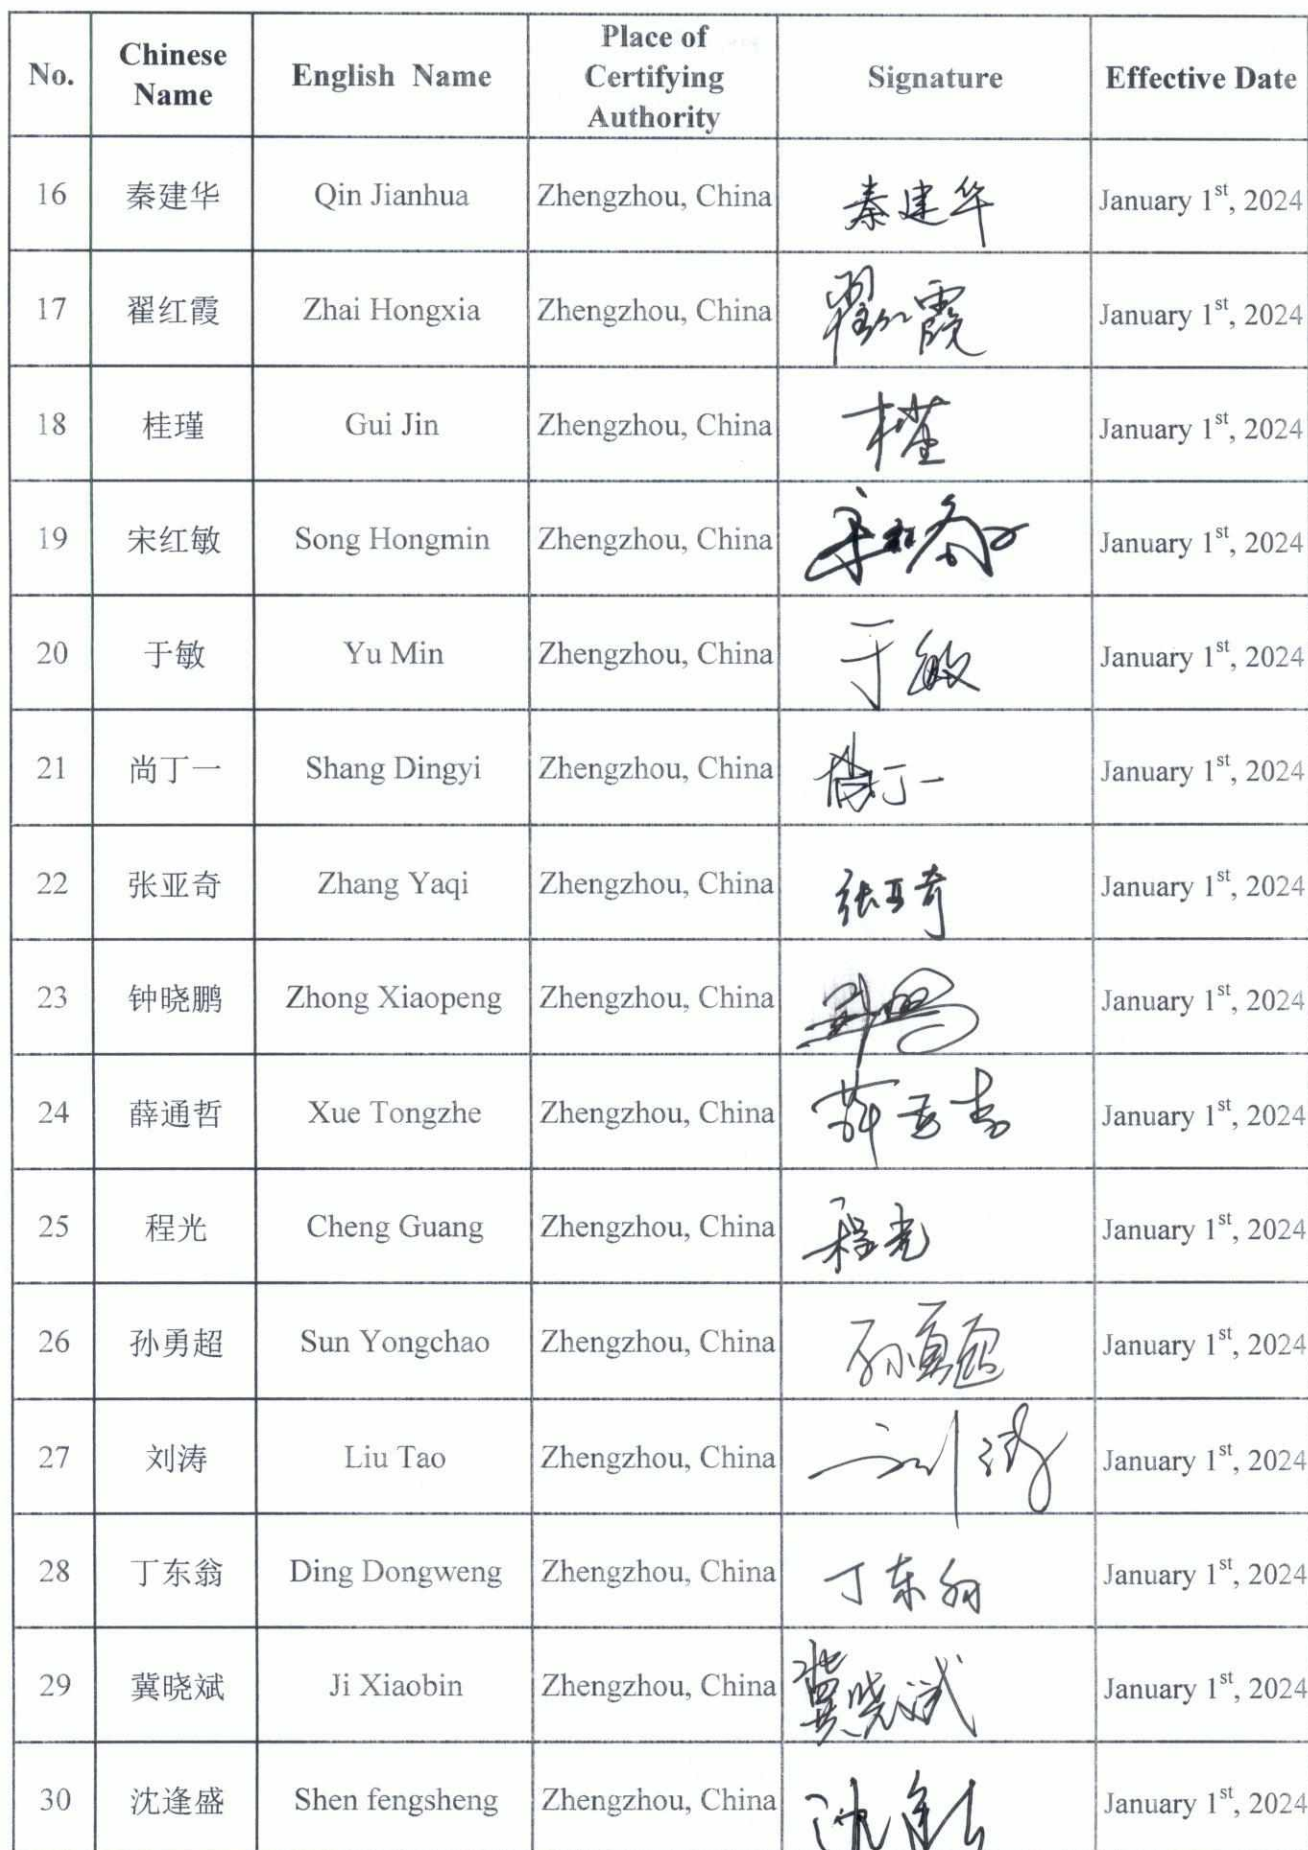 No. Chinese Name English Name Place of Certifying Authority Signature Effective Date
16 秦建华 Qin Jianhua Zhengzhou, China 秦建华 January 1st, 2024
17 翟红霞 Zhai Hongxia Zhengzhou, China 翟红霞 January 1st, 2024
18 桂瑾 Gui Jin Zhengzhou, China January 1st, 2024
19 宋红敏 Song Hongmin Zhengzhou, China January 1st, 2024
20 于敏 Yu Min Zhengzhou, China 于敏 January 1st, 2024
21 尚丁一 Shang Dingyi Zhengzhou, China 尚丁一 January 1st, 2024
22 张亚奇 Zhang Yaqi Zhengzhou, China 张亚奇 January 1st, 2024
23 钟晓鹏 Zhong Xiaopeng Zhengzhou, China January 1st, 2024
24 薛通哲 Xue Tongzhe Zhengzhou, China January 1st, 2024
25 程光 Cheng Guang Zhengzhou, China 程光 January 1st, 2024
26 孙勇超 Sun Yongchao Zhengzhou, China 孙勇超 January 1st, 2024
27 刘涛 Liu Tao Zhengzhou, China 刘涛 January 1st, 2024
28 丁东翁 Ding Dongweng Zhengzhou, China 丁东翁 January 1st, 2024
29 冀晓斌 Ji Xiaobin Zhengzhou, China 冀晓斌 January 1st, 2024
30 沈逢盛 Shen fengsheng Zhengzhou, China January 1st, 2024